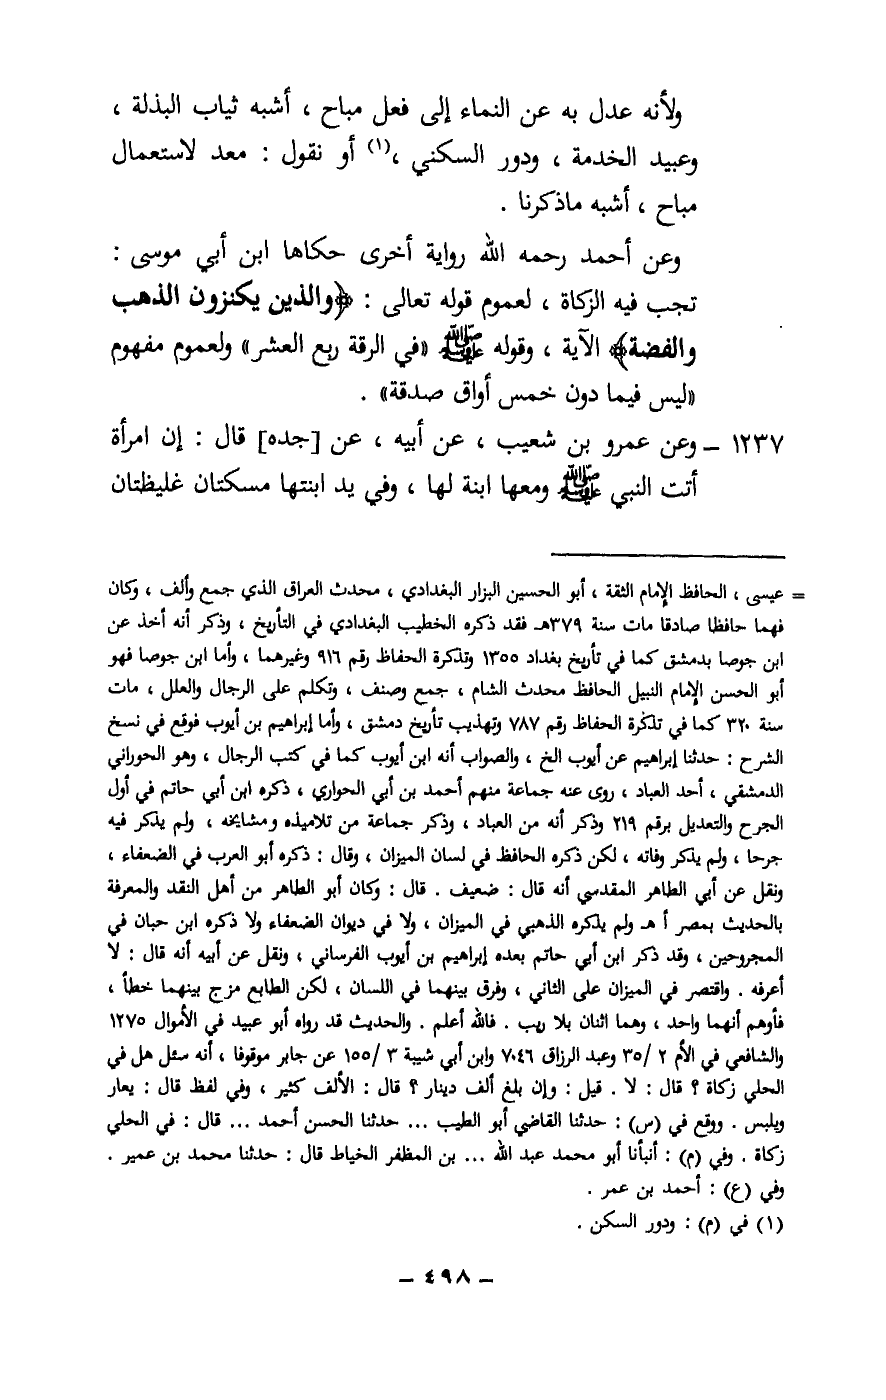 ولأنه عدل به عن النماء إلى فعل مباح ، أشبه ثياب البذلة ،
وعبيد الخدمة ، ودور السكني ،(١) أو نقول : معد لاستعمال
مباح ، أشبه ماذكرنا .
وعن أحمد رحمه الله رواية أخرى حكاها ابن أبي موسى :
تجب فيه الزكاة ، لعموم قوله تعالى : ﴿والذين يكنزون الذهب
والفضة﴾ الآية ، وقوله ﷺ «في الرقة ربع العشر» ولعموم مفهوم
«ليس فيما دون خمس أواق صدقة» .
١٢٣٧ – وعن عمرو بن شعيب ، عن أبيه ، عن [جده] قال : إن امرأة
أتت النبي ﷺ ومعها ابنة لها ، وفي يد ابنتها مسكتان غليظتان
= عيسى ، الحافظ الإمام الثقة ، أبو الحسين البزار البغدادي ، محدث العراق الذي جمع وألف ، وكان
فهما حافظا صادقا مات سنة ٣٧٩هـ فقد ذكره الخطيب البغدادي في التأريخ ، وذكر أنه أخذ عن
ابن جوصا بدمشق كما في تأريخ بغداد ١٣٥٥ وتذكرة الحفاظ رقم ٩١٦ وغيرهما ، وأما ابن جوصا فهو
أبو الحسن الإمام النبيل الحافظ محدث الشام ، جمع وصنف ، وتكلم على الرجال والعلل ، مات
سنة ٣٢٠ كما في تذكرة الحفاظ رقم ٧٨٧ وتهذيب تأريخ دمشق ، وأما إبراهيم بن أيوب فوقع في نسخ
الشرح : حدثنا إبراهيم عن أيوب الخ ، والصواب أنه ابن أيوب كما في كتب الرجال ، وهو الحوراني
الدمشقي ، أحد العباد ، روى عنه جماعة منهم أحمد بن أبي الحواري ، ذكره ابن أبي حاتم في أول
الجرح والتعديل برقم ٢١٩ وذكر أنه من العباد ، وذكر جماعة من تلاميذه ومشايخه ، ولم يذكر فيه
جرحا ، ولم يذكر وفاته ، لكن ذكره الحافظ في لسان الميزان ، وقال : ذكره أبو العرب في الضعفاء ،
ونقل عن أبي الطاهر المقدسي أنه قال : ضعيف . قال : وكان أبو الطاهر من أهل النقد والمعرفة
بالحديث بمصر أ هـ ولم يذكره الذهبي في الميزان ، ولا في ديوان الضعفاء ولا ذكره ابن حبان في
المجروحين ، وقد ذكر ابن أبي حاتم بعده إبراهيم بن أيوب الفرساني ، ونقل عن أبيه أنه قال : لا
أعرفه . واقتصر في الميزان على الثاني ، وفرق بينهما في اللسان ، لكن الطابع مزج بينهما خطأ ،
فأوهم أنهما واحد ، وهما اثنان بلا ريب . فالله أعلم . والحديث قد رواه أبو عبيد في الأموال ١٢٧٥
والشافعي في الأم ٢ /٣٥ وعبد الرزاق ٧٠٤٦ وابن أبي شيبة ٣ /١٥٥ عن جابر موقوفا ، أنه سئل هل في
الحلي زكاة ؟ قال : لا . قيل : وإن بلغ ألف دينار ؟ قال : الألف كثير ، وفي لفظ قال : يعار
ويلبس . ووقع في (س) : حدثنا القاضي أبو الطيب ... حدثنا الحسن أحمد ... قال : في الحلي
زكاة . وفي (م) : أنبأنا أبو محمد عبد الله ... بن المظفر الخياط قال : حدثنا محمد بن عمير .
وفي (ع) : أحمد بن عمر .
(١) في (م) : ودور السكن .
– ٤٩٨ –